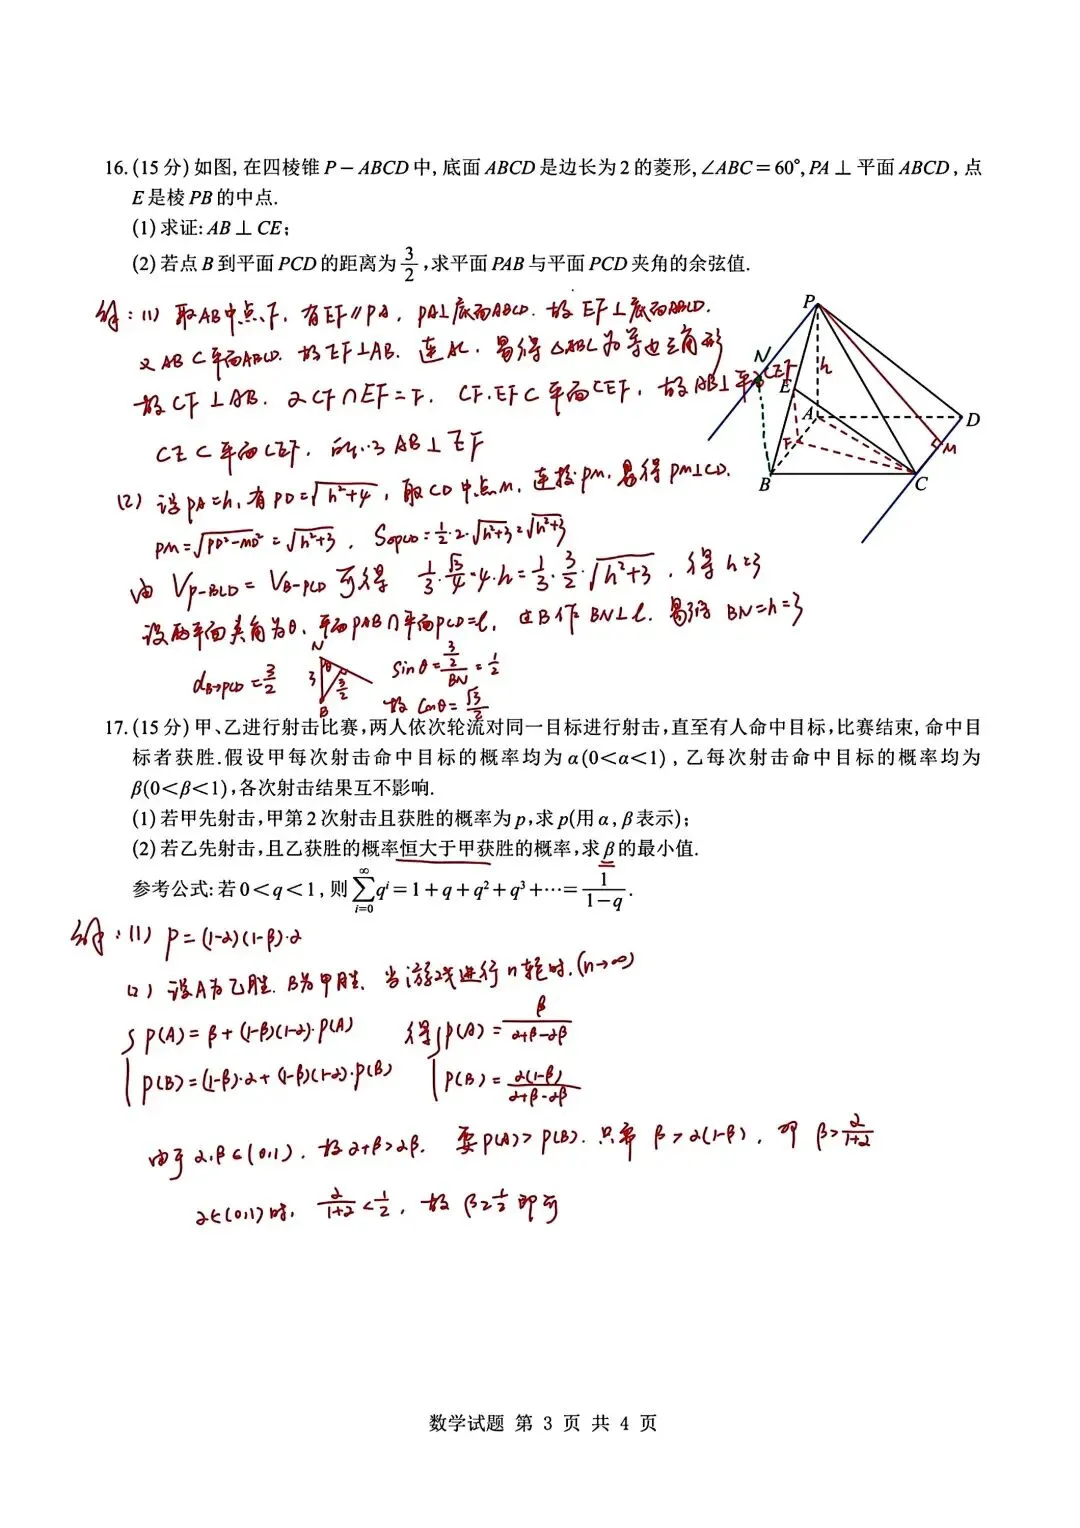 16. (15分) 如图, 在四棱锥 P－ABCD 中, 底面 ABCD 是边长为 2 的菱形, ∠ABC＝60°, PA⊥平面 ABCD, 点
E 是棱 PB 的中点.
(1) 求证: AB⊥CE;
(2) 若点 B 到平面 PCD 的距离为 3/2, 求平面 PAB 与平面 PCD 夹角的余弦值.
解: (1) 取AB中点F. 有EF∥PA, PA⊥底面ABCD. 故 EF⊥底面ABCD.
又 AB⊂平面ABCD. 故EF⊥AB. 连AC. 易得△ABC为等边三角形
故 CF⊥AB. 又CF∩EF=F. CF.EF⊂平面CEF, 故AB⊥平面CEF
CE⊂平面CEF. 所以 AB⊥EF
(2) 设PA=h, 有PD=√(h²+4), 取CD中点M, 连接PM, 易得PM⊥CD.
PM=√(PD²-MD²)=√(h²+3), S△PCD=1/2·2·√(h²+3)=√(h²+3)
由 V_{P-BCD}=V_{B-PCD} 可得 1/3·√3/4·4·h=1/3·3/2·√(h²+3), 得 h=3
设两平面夹角为θ, 平面PAB∩平面PCD=l, 过B作BN⊥l. 易得 BN=h=3
d_{B→PCD}=3/2 sinθ=(3/2)/BN=1/2
故 cosθ=√3/2
N
θ
3
3/2
B
P
N
h
E
A
D
F
M
B
C
17. (15分) 甲、乙进行射击比赛, 两人依次轮流对同一目标进行射击, 直至有人命中目标, 比赛结束, 命中目
标者获胜. 假设甲每次射击命中目标的概率均为 α(0<α<1), 乙每次射击命中目标的概率均为
β(0<β<1), 各次射击结果互不影响.
(1) 若甲先射击, 甲第 2 次射击且获胜的概率为 p, 求 p(用 α, β 表示);
(2) 若乙先射击, 且乙获胜的概率恒大于甲获胜的概率, 求 β 的最小值.
参考公式: 若 0<q<1, 则 ∑_{i=0}^{∞} qⁱ=1+q+q²+q³+⋯=1/(1－q).
解: (1) P=(1-α)(1-β)·α
(2) 设A为乙胜. B为甲胜. 当游戏进行n轮时. (n→∞)
{ P(A)=β+(1-β)(1-α)·P(A) 得{ P(A)=β/(α+β-αβ)
P(B)=(1-β)·α+(1-β)(1-α)·P(B) P(B)=α(1-β)/(α+β-αβ)
由于 α.β∈(0,1). 故 α+β>αβ. 要P(A)>P(B). 只需 β>α(1-β), 即 β>α/(1+α)
α∈(0,1)时, α/(1+α)<1/2, 故 β≥1/2 即可
数学试题 第 3 页 共 4 页